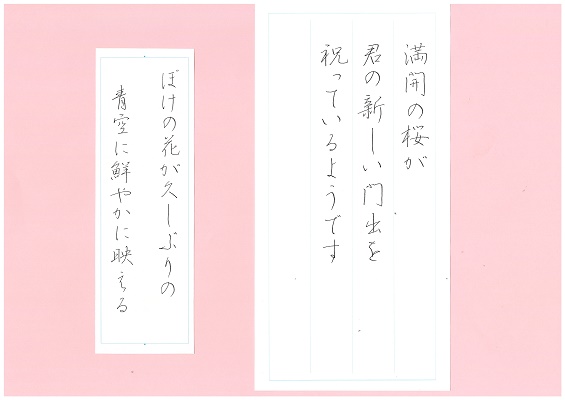 満開の桜が
君の新しい門出を
祝っているようです
ぼけの花が久しぶりの
青空に鮮やかに映える